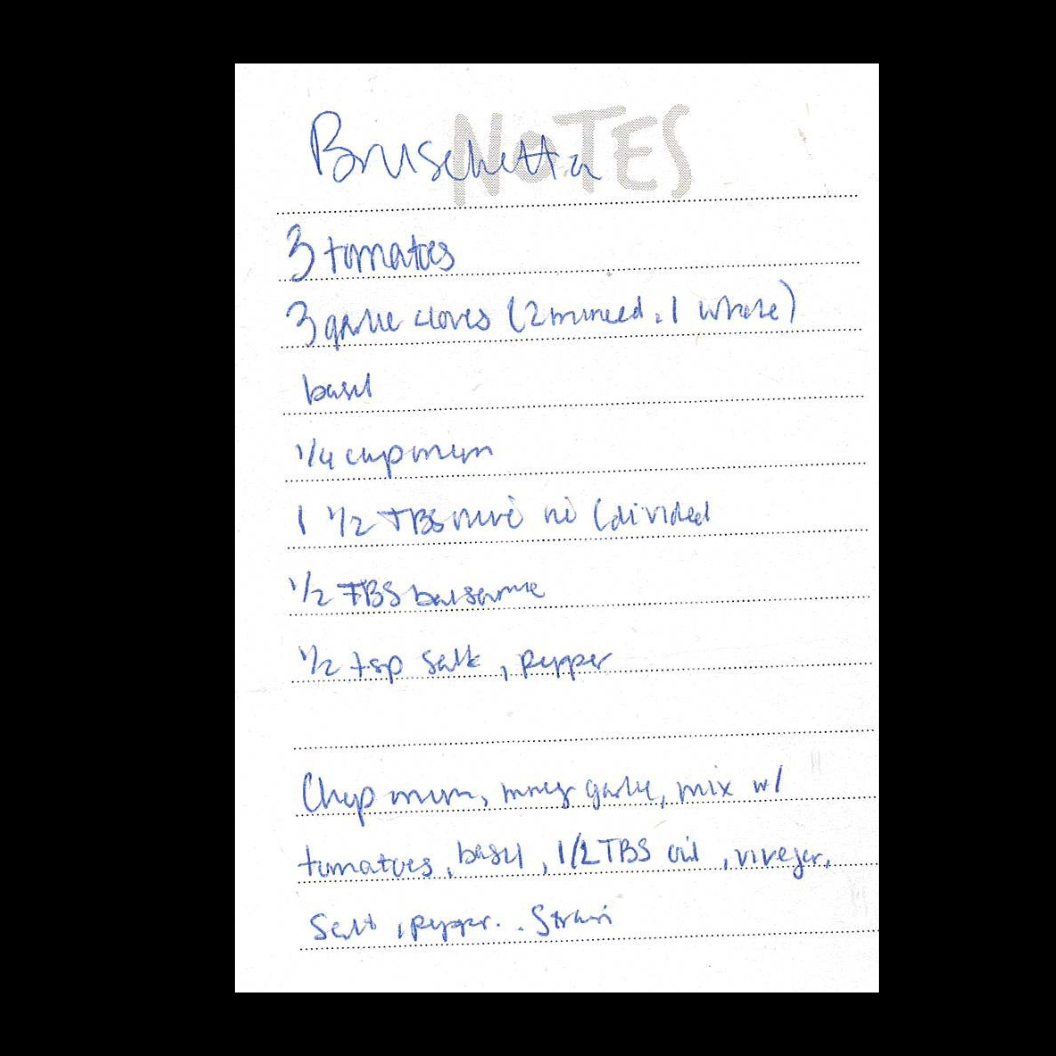 NOTES
Bruschetta
3 tomatoes
3 garlic cloves (2 minced, 1 whole)
basil
1/4 cup onion
1 1/2 TBS olive oil (divided
1/2 TBS balsamic
1/2 tsp salt, pepper
Chop onion, mince garlic, mix w/
tomatoes, basil, 1/2 TBS oil, vinegar,
Salt, pepper. . Strain